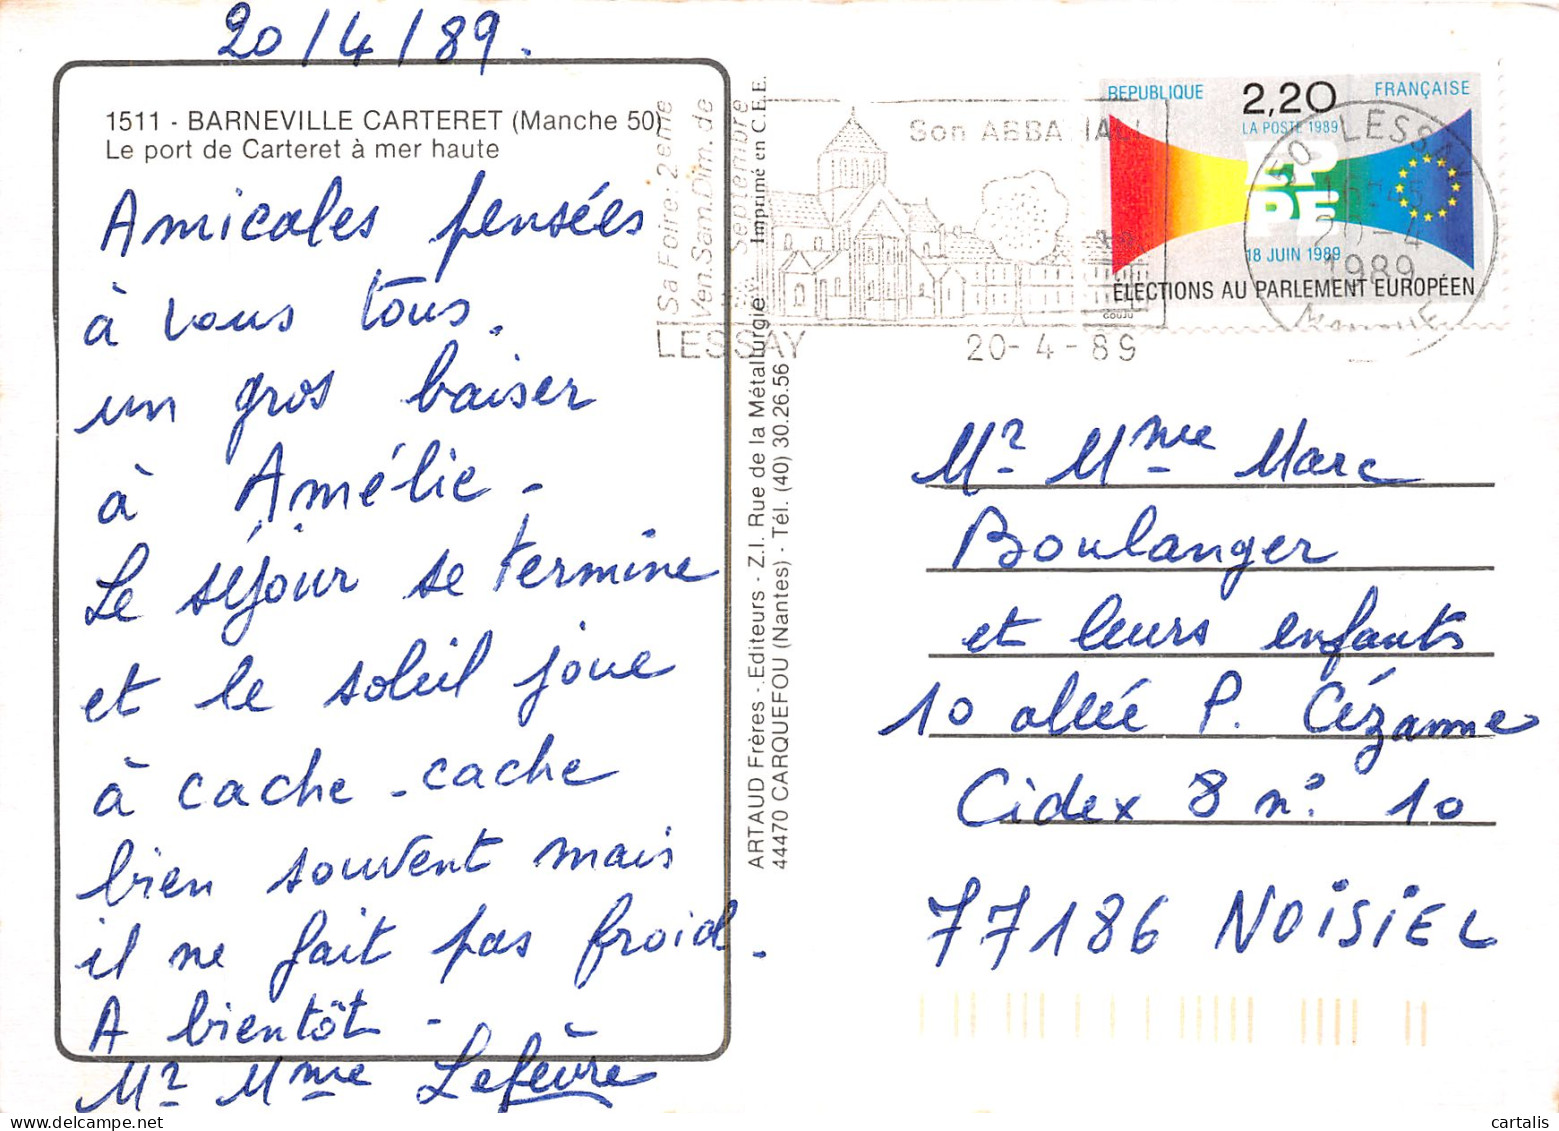 20/4/89.
1511 - BARNEVILLE CARTERET (Manche 50)
Le port de Carteret à mer haute
Amicales pensées
à vous tous.
un gros baiser
à Amélie -
Le séjour se termine
et le soleil joue
à cache-cache
bien souvent mais
il ne fait pas froid.
A bientôt -
Mr Mme Lefèvre
ARTAUD Frères - Editeurs - Z.I. Rue de la Métallurgie
44470 CARQUEFOU (Nantes) - Tél. (40) 30.26.56
Imprimé en C.E.E.
Sa Foire: 2eme
Ven. Sam. Dim. de
Septembre
Son
LESSAY
20-4-89
REPUBLIQUE 2,20 FRANÇAISE
LA POSTE 1989
18 JUIN 1989
ELECTIONS AU PARLEMENT EUROPÉEN
50 LESSAY
20-4
1989
MANCHE
Mr Mme Marc
Boulanger
et leurs enfants
10 allée P. Cézanne
Cidex 8 n° 10
77186 NOISIEL
cartalis